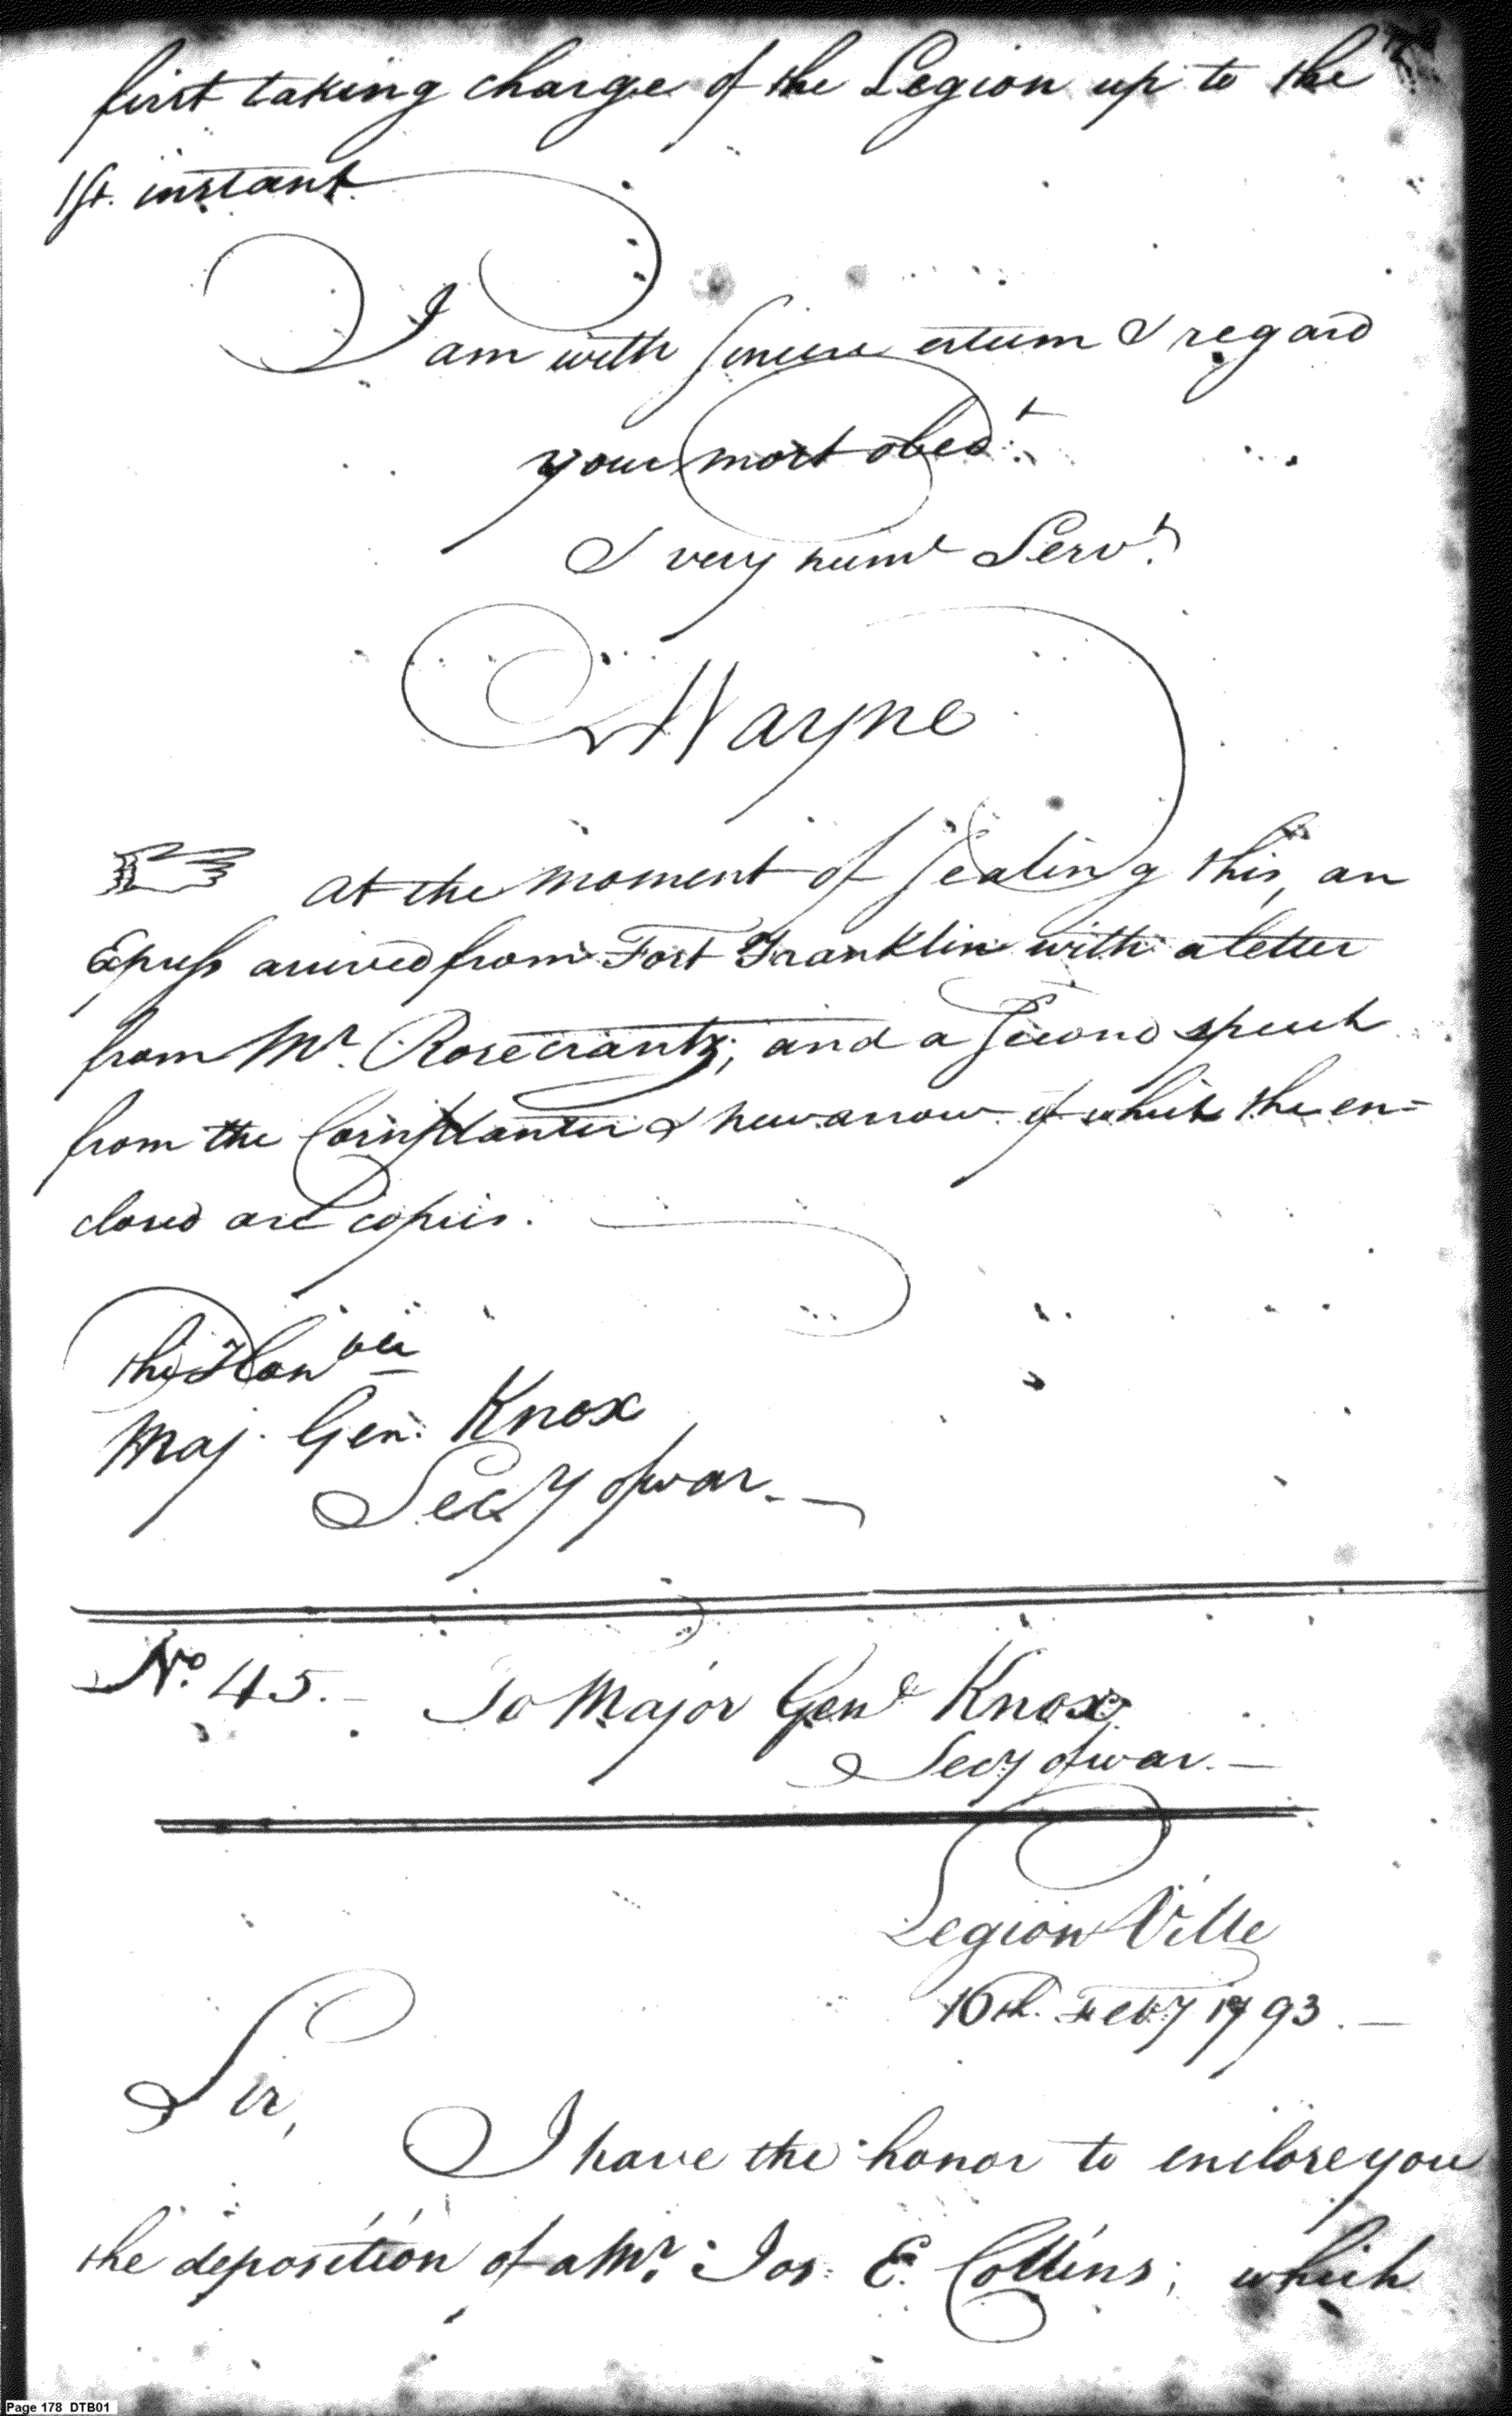 first taking charge of the Legion up to the
1st. instant
I am with sincere esteem & regard
your most obedt.
& very huml Servt.
Wayne
at the moment of sealing this, an
Express arrived from Fort Franklin with a letter
from Mr. Rosecrantz; and a second speech
from the Cornplanter & new arrow of which the en=
closed are copies.
The Honble
Maj. Gen: Knox
Secy of war. —
No. 45. — To Major Genl Knox
Secy of war. —
Legion Ville
16th. Feby 1793. —
Sir,
I have the honor to enclose you
the deposition of a Mr. Jos: E. Collins; which
Page 178 DTB01